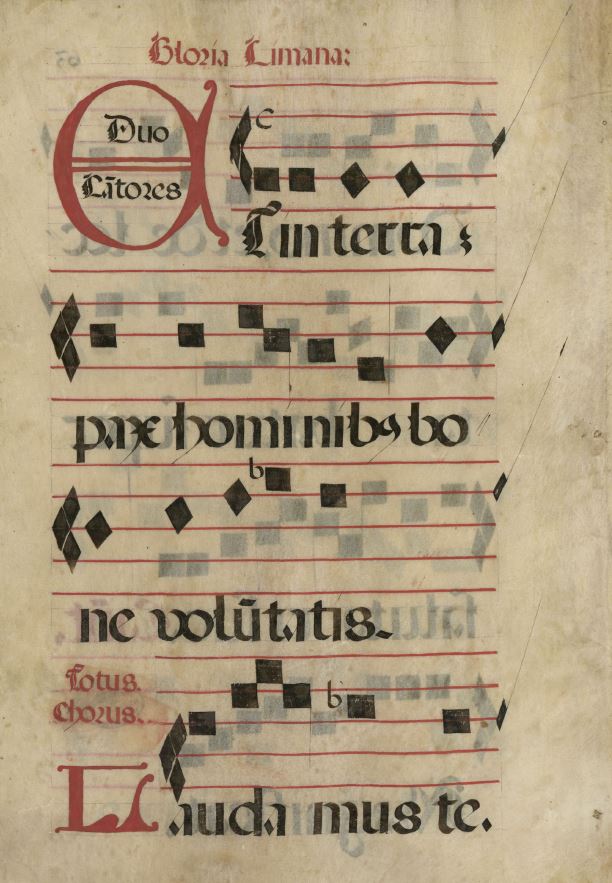 Gloria Limana:
Duo
Cãtores
ET in terra
paxe hominibꝰ bo
ne volũtatis.
Totus.
Chorus.
Lauda mus te.